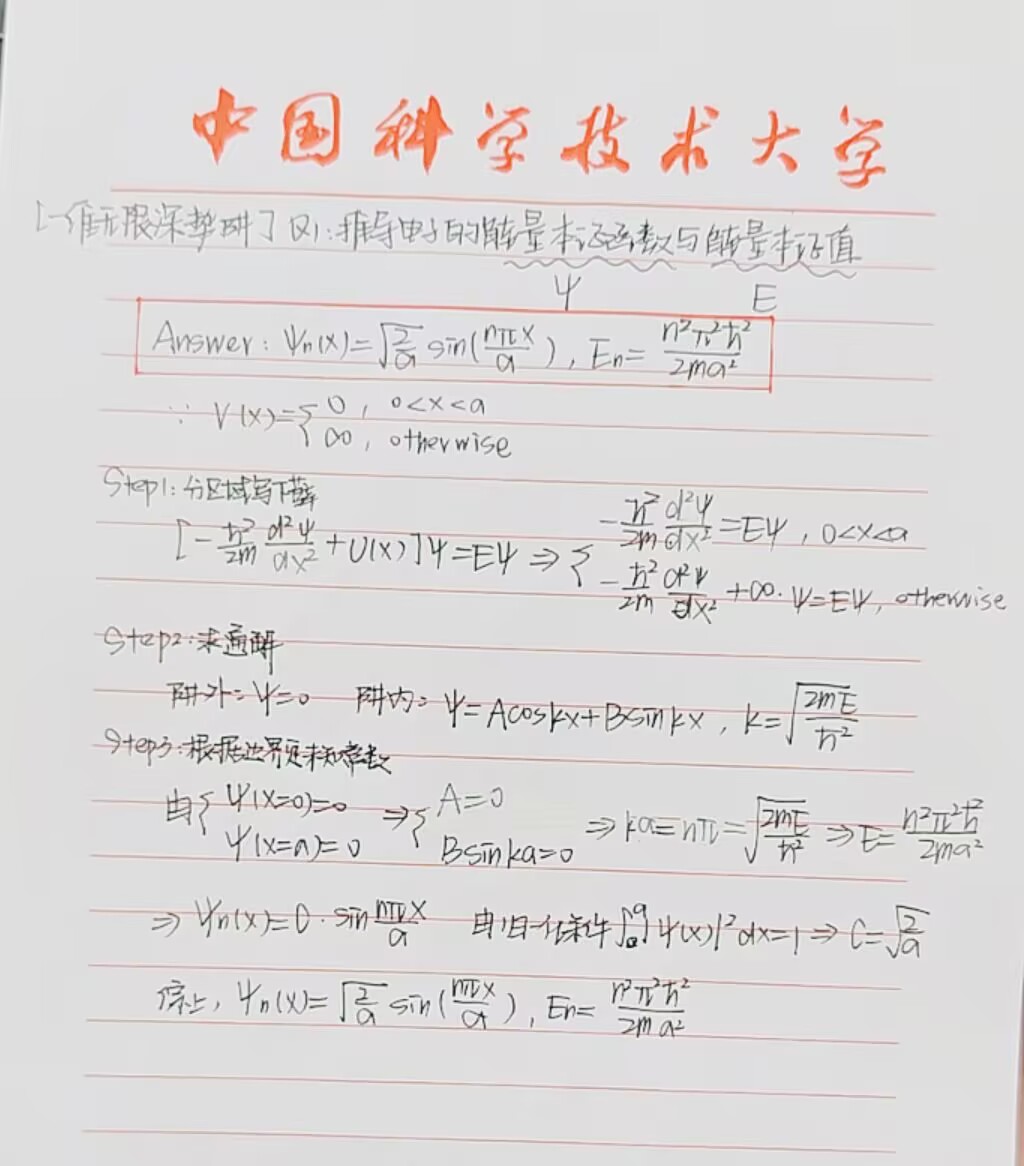 中国科学技术大学
[一维无限深势阱] Q1: 推导电子的能量本征函数与能量本征值
Ψ E
Answer: Ψn(x)=√(2/a) sin(nπx/a), En= n²π²ħ²/2ma²
∵ V(x)={0, 0<x<a
∞, otherwise
Step1: 分区域写下薛
[-ħ²/2m d²Ψ/dx² + U(x)]Ψ=EΨ ⇒ { -ħ²/2m d²Ψ/dx²=EΨ, 0<x<a
-ħ²/2m d²Ψ/dx² +∞·Ψ=EΨ, otherwise
Step2: 求通解
阱外: Ψ=0 阱内: Ψ=Acoskx+Bsinkx, k=√(2mE/ħ²)
Step3: 根据边界定未知常数
由{Ψ(x=0)=0 ⇒ {A=0
Ψ(x=a)=0 Bsinka=0 ⇒ ka=nπ=√(2mE/ħ²) ⇒ E= n²π²ħ²/2ma²
⇒ Ψn(x)=C·sin nπx/a 由归一化条件∫₀ᵃ|Ψ(x)|²dx=1 ⇒ C=√(2/a)
综上, Ψn(x)=√(2/a) sin(nπx/a), En= n²π²ħ²/2ma²